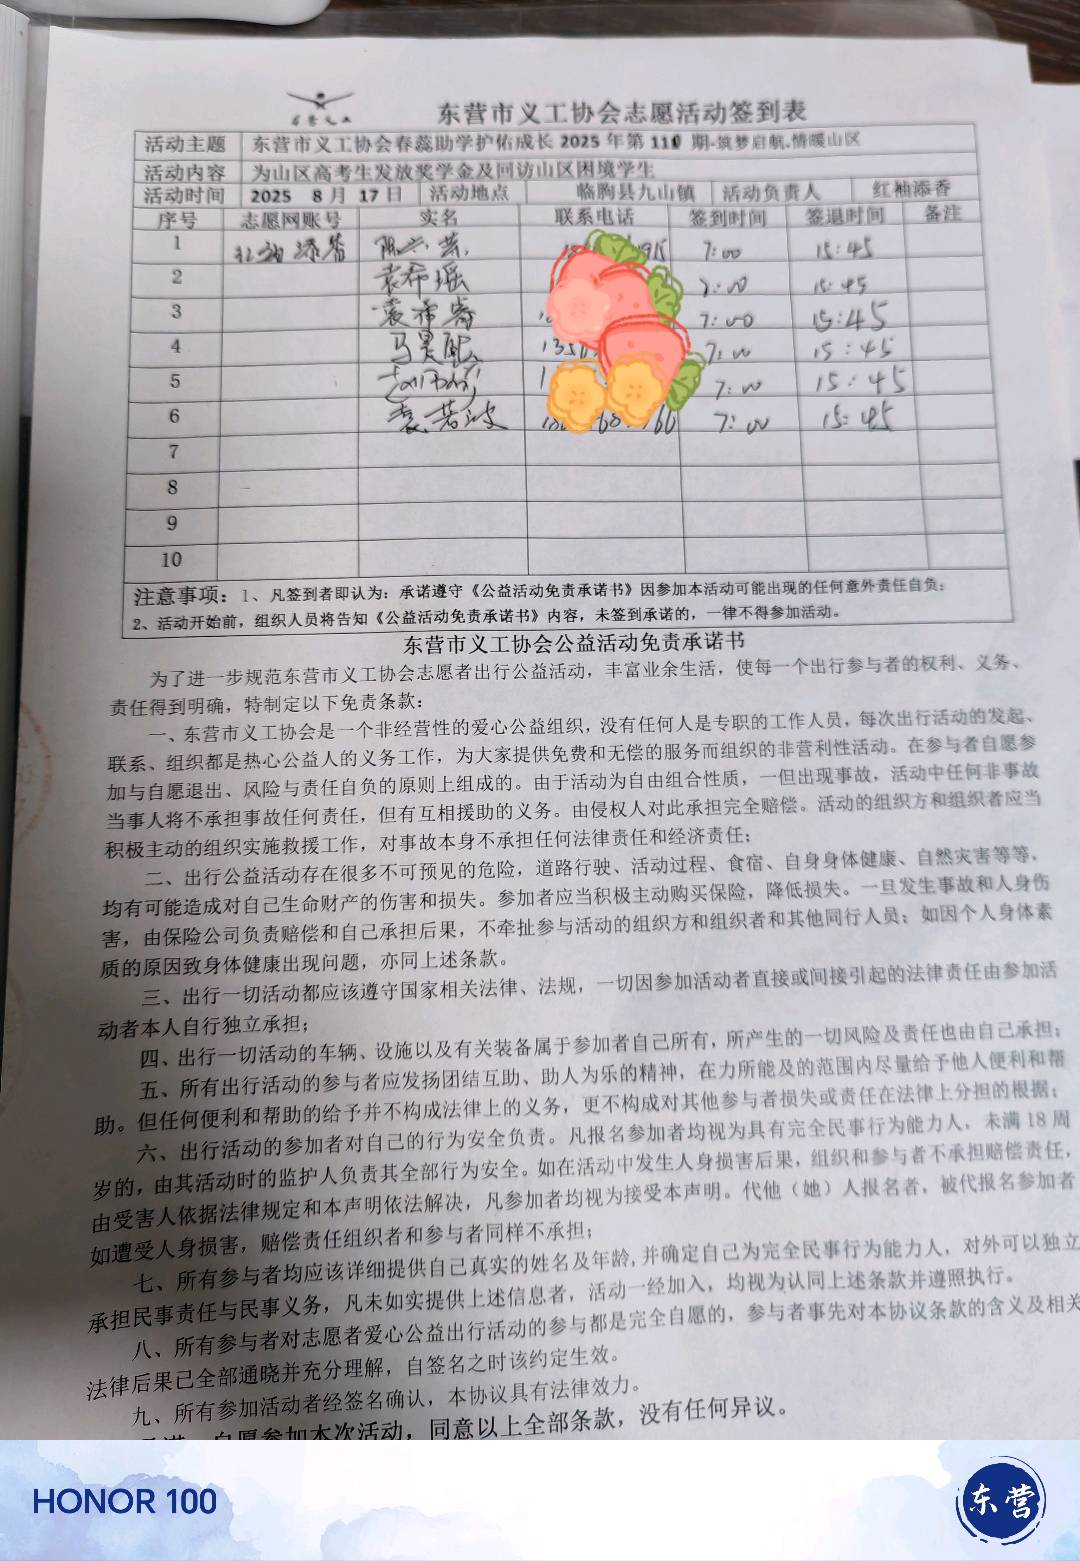 东营义工
东营市义工协会志愿活动签到表
活动主题 东营市义工协会春蕊助学护佑成长 2025 年第 110 期-筑梦启航.情暖山区
活动内容 为山区高考生发放奖学金及回访山区困境学生
活动时间 2025 8 月 17 日 活动地点 临朐县九山镇 活动负责人 红袖添香
序号 志愿网账号 实名 联系电话 签到时间 签退时间 备注
1 红袖添香 7:00 15:45
2 袁希瑶 7:00 15:45
3 7:00 15:45
4 马昊 7:00 15:45
5 7:00 15:45
6 袁若波 7:00 15:45
7
8
9
10
注意事项：1、凡签到者即认为：承诺遵守《公益活动免责承诺书》因参加本活动可能出现的任何意外责任自负；
2、活动开始前，组织人员将告知《公益活动免责承诺书》内容，未签到承诺的，一律不得参加活动。
东营市义工协会公益活动免责承诺书
为了进一步规范东营市义工协会志愿者出行公益活动，丰富业余生活，使每一个出行参与者的权利、义务、
责任得到明确，特制定以下免责条款：
一、东营市义工协会是一个非经营性的爱心公益组织，没有任何人是专职的工作人员，每次出行活动的发起、
联系、组织都是热心公益人的义务工作，为大家提供免费和无偿的服务而组织的非营利性活动。在参与者自愿参
加与自愿退出、风险与责任自负的原则上组成的。由于活动为自由组合性质，一但出现事故，活动中任何非事故
当事人将不承担事故任何责任，但有互相援助的义务。由侵权人对此承担完全赔偿。活动的组织方和组织者应当
积极主动的组织实施救援工作，对事故本身不承担任何法律责任和经济责任；
二、出行公益活动存在很多不可预见的危险，道路行驶、活动过程、食宿、自身身体健康、自然灾害等等，
均有可能造成对自己生命财产的伤害和损失。参加者应当积极主动购买保险，降低损失。一旦发生事故和人身伤
害，由保险公司负责赔偿和自己承担后果，不牵扯参与活动的组织方和组织者和其他同行人员；如因个人身体素
质的原因致身体健康出现问题，亦同上述条款。
三、出行一切活动都应该遵守国家相关法律、法规，一切因参加活动者直接或间接引起的法律责任由参加活
动者本人自行独立承担；
四、出行一切活动的车辆、设施以及有关装备属于参加者自己所有，所产生的一切风险及责任也由自己承担；
五、所有出行活动的参与者应发扬团结互助、助人为乐的精神，在力所能及的范围内尽量给予他人便利和帮
助。但任何便利和帮助的给予并不构成法律上的义务，更不构成对其他参与者损失或责任在法律上分担的根据；
六、出行活动的参加者对自己的行为安全负责。凡报名参加者均视为具有完全民事行为能力人，未满 18 周
岁的，由其活动时的监护人负责其全部行为安全。如在活动中发生人身损害后果，组织和参与者不承担赔偿责任，
由受害人依据法律规定和本声明依法解决，凡参加者均视为接受本声明。代他（她）人报名者，被代报名参加者
如遭受人身损害，赔偿责任组织者和参与者同样不承担；
七、所有参与者均应该详细提供自己真实的姓名及年龄,并确定自己为完全民事行为能力人，对外可以独立
承担民事责任与民事义务，凡未如实提供上述信息者，活动一经加入，均视为认同上述条款并遵照执行。
八、所有参与者对志愿者爱心公益出行活动的参与都是完全自愿的，参与者事先对本协议条款的含义及相关
法律后果已全部通晓并充分理解，自签名之时该约定生效。
九、所有参加活动者经签名确认，本协议具有法律效力。
自愿参加本次活动，同意以上全部条款，没有任何异议。
HONOR 100
东营